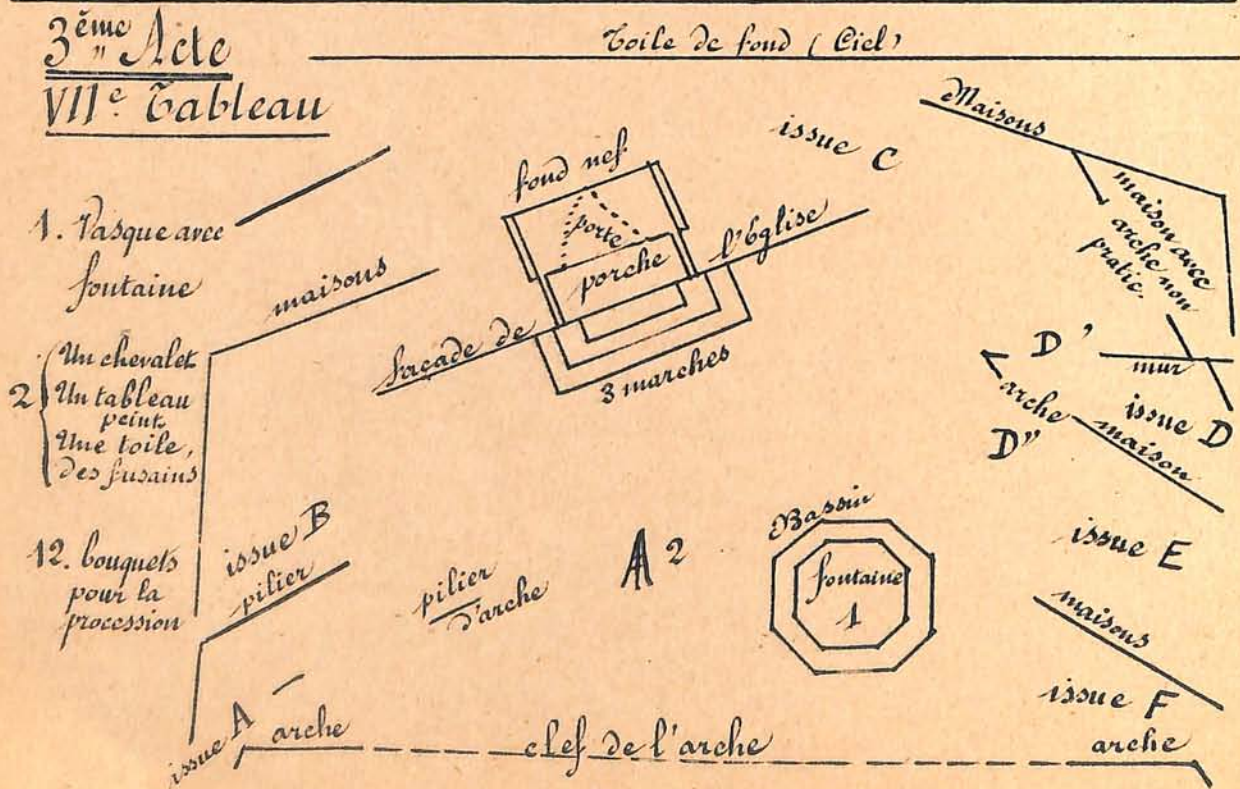 3ème Acte
VIIe Tableau
Toile de fond (Ciel)
1. Vasque avec
fontaine
2 { Un chevalet
Un tableau
peint,
Une toile,
des fusains
12. bouquets
pour la
procession
maisons
façade de l'Église
fond nef
porte
porche
3 marches
issue C
Maisons
maison avec
arche non
pratic.
D'
mur
issue D
arche
maison
D"
issue E
maisons
issue F
arche
issue B
pilier
pilier
d'arche
A 2
Bassin
fontaine
1
issue A
arche
clef de l'arche